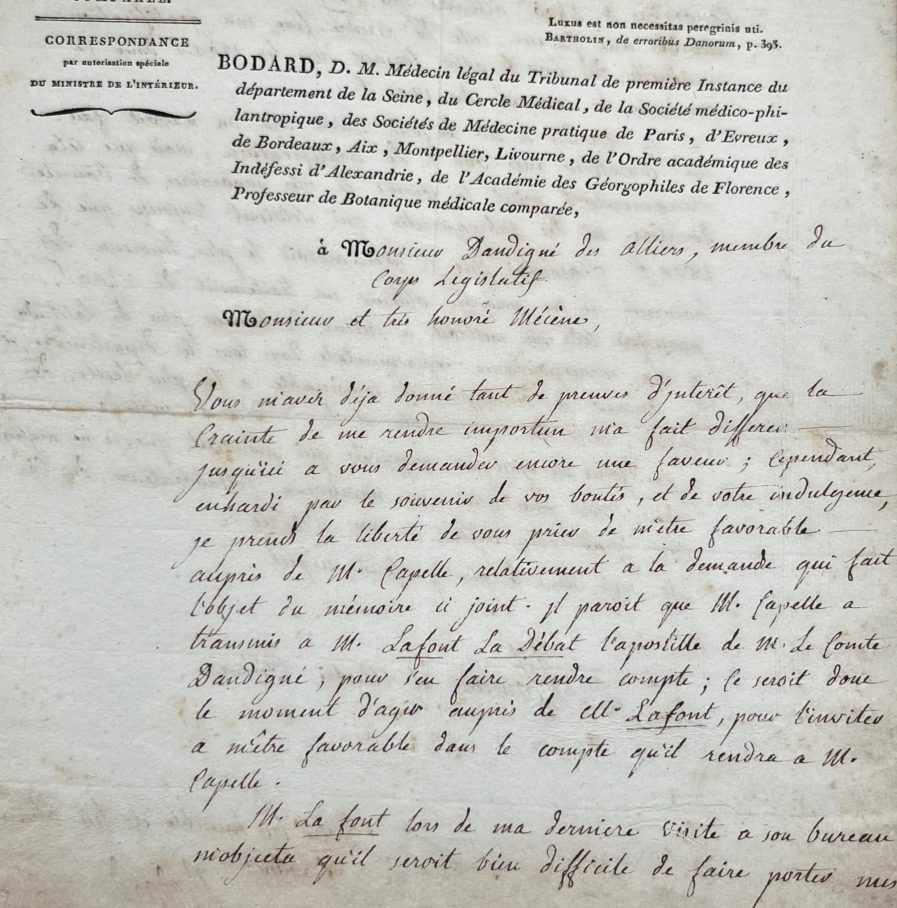 COMPARÉE.
CORRESPONDANCE
par autorisation spéciale
DU MINISTRE DE L'INTÉRIEUR.
Luxus est non necessitas peregrinis uti.
BARTHOLIN, de erroribus Danorum, p. 393.
BODARD, D. M. Médecin légal du Tribunal de première Instance du
département de la Seine, du Cercle Médical, de la Société médico-phi-
lantropique, des Sociétés de Médecine pratique de Paris, d'Evreux,
de Bordeaux, Aix, Montpellier, Livourne, de l'Ordre académique des
Indéfessi d'Alexandrie, de l'Académie des Géorgophiles de Florence,
Professeur de Botanique médicale comparée,
à Monsieur Dandigné des alliers, membre du
Corps Législatif
Monsieur et très honoré Mécène,
Vous m'avez déja donné tant de preuves d'interêt, que la
Crainte de me rendre importun m'a fait differer
jusqu'ici a vous demander encore une faveur ; Cependant,
enhardi par le souvenir de vos bontés, et de votre indulgence,
je prends la liberté de vous prier de m'être favorable
auprès de Mr. Capelle, relativement a la demande qui fait
l'objet du mémoire ci joint. Il paroit que M. Capelle a
transmis a M. Lafont La Débat l'apostille de M. Le Comte
Dandigné, pour s'en faire rendre compte ; Ce seroit donc
le moment d'agir auprès de Mr. Lafont, pour l'inviter
a m'être favorable dans le compte qu'il rendra a M.
Capelle.
M. La font lors de ma derniere visite a son bureau
m'objecta qu'il seroit bien difficile de faire porter mes